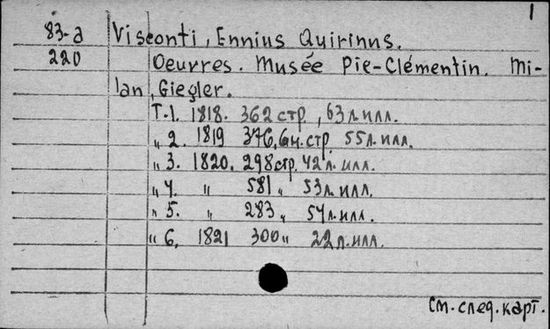 1
83-д Visconti, Ennius Quirinus.
220 Oeuvres. Musée Pie-Clémentin. Mi-
lan, Giegler.
Т-1. 1818. 362 стр., 63 л. илл.
„ 2. 1819 376, 6 н. стр. 55 л. илл.
„ 3. 1820. 298 стр. 42 л. илл.
„ 4. „ 581 „ 53 л. илл.
„ 5. „ 283 „ 54 л. илл.
„ 6. 1821 300 „ 22 л. илл.
См. след. карт.